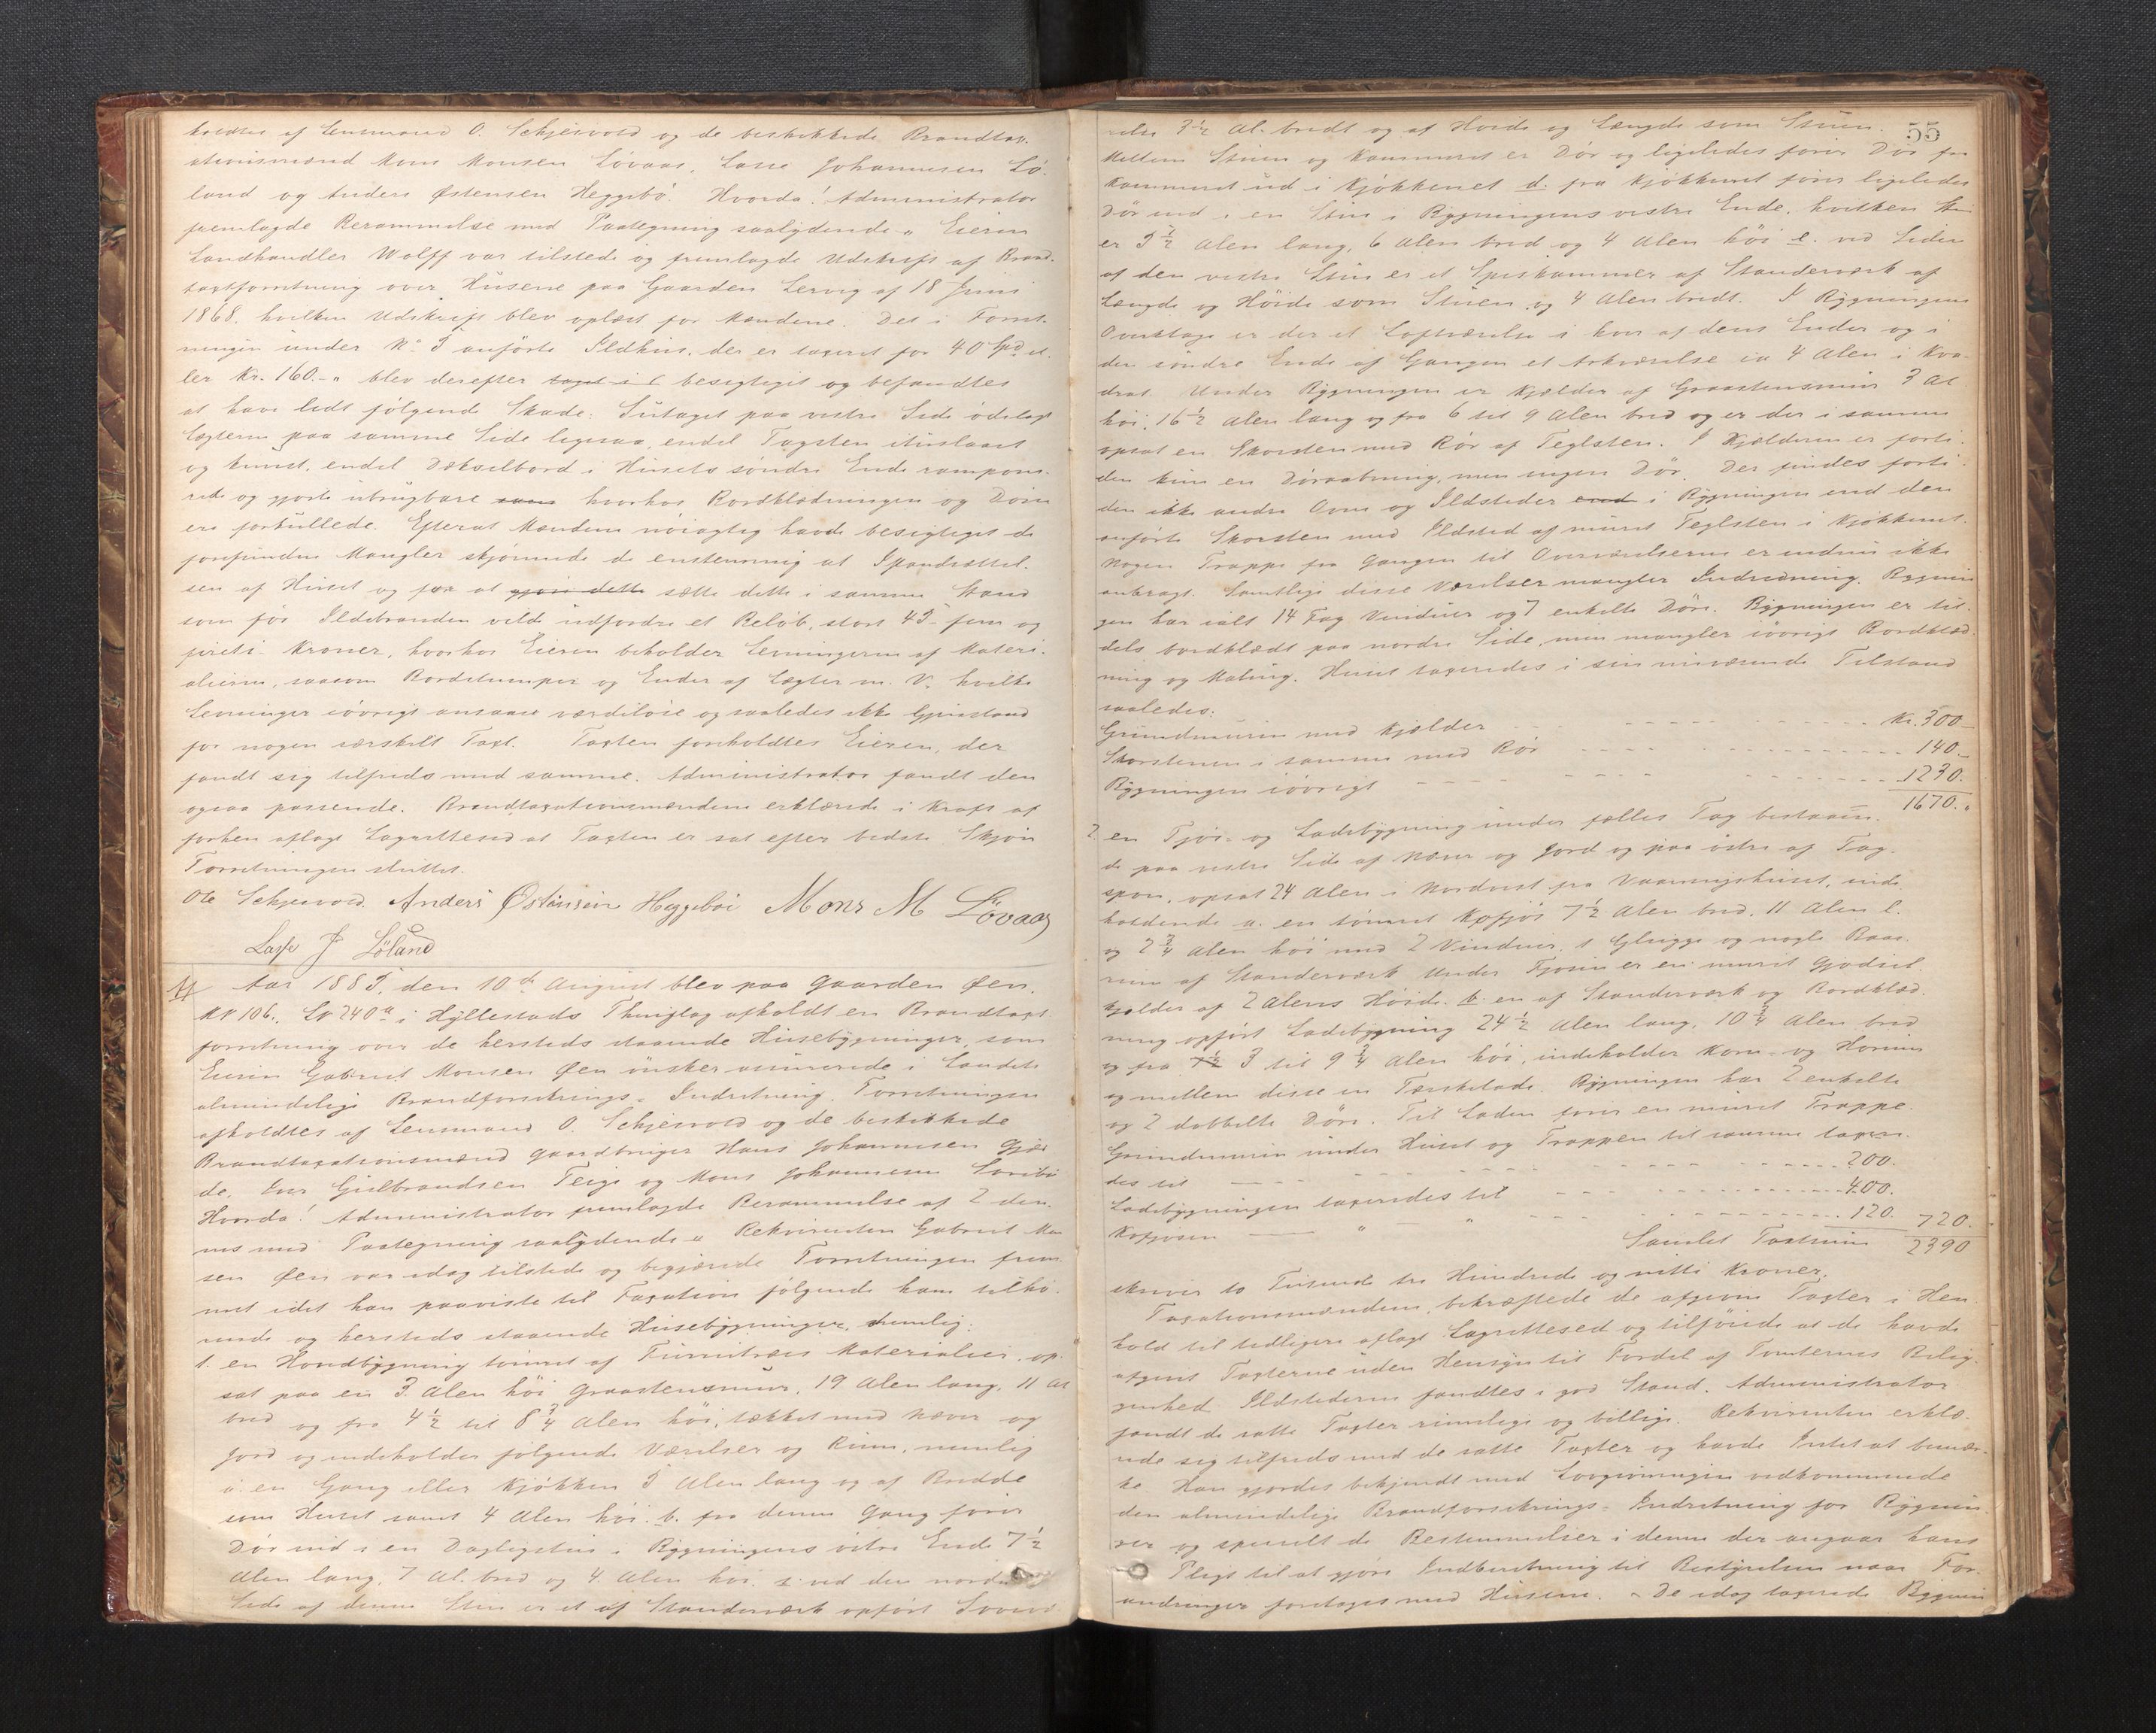 holdtes af Lensmand O. Schjesvold og de beskikkede Brandtax-
ationsmænd Mons Monsen Løvaas, Lasse Johannesen Lø-
land og Anders Østensen Heggebö. Hvorda! Administrator
fremlagde Berammelse med Paategning saalydende " Eieren
Landhandler Wolff var tilstede og fremlagde Udskrift af Brand-
taxtforretning over Husene paa Gaarden Lervig af 18 Juni
1868. hvilken Udskrift blev oplæst for Mændene. Det i Forret-
ningen under No 5 anførte Ildhus, der er taxeret for 40 Spd el-
ler Kr. 160.- " blev derefter besigtiget og befandtes
at have lidt følgende Skade: Sutaget paa vestre Side ödelagt
Lægterne paa samme Side ligesaa, endel Tagsten ituslaaet
og knust, endel Dækselbord i Husets söndre Ende rampone-
rede og gjorte ubrugbare som hvorhos Bordklædningen og Dören
ere forkullede. Efterat Mændene nöiagtig havde besigtiget de
forefundne Mangler skjönnede de enstemmig at Istandsættel-
sen af Huset og for at gjøre dette sætte dette i samme Stand
som för Ildebranden vilde udfordre et Belöb, stort 45 - fem og
fireti - Kroner, hvorhos Eieren beholder Levningerne af Materi-
alierne, saasom Bordstumper og Ender af Lægter m. V. hvilke
Levninger iövrigt ansaaes værdilöse og saaledes ikke Gjenstand
for nogen særskilt Taxt. Taxten foreholdtes Eieren, der
fandt sig tilfreds med samme. Administrator fandt den
ogsaa passende. Brandtaxationsmændene erklærede i Kraft af
forhen aflagt Lagrettesed at Taxten er sat efter bedste Skjön
Forretningen sluttet.
Ole Schjesvold Anders Østensen Heggebøi Mons M Løvaas
Lasse J Løland
Aar 1885, den 10de August blev paa Gaarden Øen,
MN 106., LN 240a i Hyllestads Thinglag afholdt en Brandtaxt-
forretning over de hersteds staaende Husebygninger, som
Eieren Gabriel Monsen Øen ønsker assurerede i Landets
almindelige Brandforsikrings-Indretning. Forretningen
afholdtes af Lensmand O. Schjesvold og de beskikkede
Brandtaxationsmænd Gaardbruger Hans Johannesen Gjær-
de, Iver Gulbrandsen Teige og Mons Johannesen Sörebö
Hvorda! Administrator fremlagde Berammelse af 2 den-
nes med Paategning saalydende " Rekvirenten Gabriel Mon
sen Øen var idag tilstede og begjærede Forretningen frem-
met idet han paaviste til Taxation følgende ham tilhö-
rende og hersteds staaende Husebygninger, nemlig:
1. en Hovedbygning tömret af Furutræs Materialier, op-
sat paa en 3 Alen höi Graastensmur, 19 Alen lang, 11 Al
bred og fra 4 1/2 til 8 3/4 Alen höi, tækket med Næver og
Jord og indeholder følgende Værelser og Rum, nemlig
a. en Gang eller Kjökken 5 Alen lang og af Bredde
som Huset samt 4 Alen höi. b. fra denne Gang förer
Dör ind i en Dagligstue i Bygningens östre Ende 7 1/2
Alen lang, 7 Al. bred og 4 Alen höi. c. ved den nordre
Side af denne Stue er et af Standerværk opfört Sovevæ-
55
relse 3 1/2 Al. bredt og af Hoide og Længde som Stuen.
Mellem Stuen og Kammeret er Dör og ligeledes förer Dör fra
Kammeret ud i Kjökkenet d. fra Kjökkenet förer ligeledes
Dör ind i en Stue i Bygningens vestre Ende, hvilken Stue
er 5 1/2 Alen lang, 6 Alen bred og 4 Alen höi e. ved Siden
af den vestre Stue er et Spiskammer af Standerværk af
Længde og Höide som Stuen og 4 Alen bredt. I Bygningens
Overetage er der et Loftværelse i hver af dens Ender og i
den söndre Ende af Gangen et Arkværelse ca 4 Alen i Kva-
drat. Under Bygningen er Kjælder af Graastensmur 3 Al.
höi, 16 1/2 Alen lang og fra 6 til 9 Alen bred og er der i samme
opsat en Skorsten med Rör af Teglsten. I Kjælderen er forti-
den kun en Döraabning, men ingen Dör. Der findes forti-
den ikke andre Ovne og Ildsteder end i Bygningen end den
anförte Skorsten med Ildsted af muret Teglsten i Kjökkenet.
Nogen Trappe fra Gangen til Overværelserne er endnu ikke
anbragt. Samtlige disse Værelser mangler Indredning. Bygnin
gen har ialt 14 Fag Vinduer og 7 enkelte Döre. Bygningen er til-
dels bordklædt paa nordre Side, men mangler iövrigt Bordklæd-
ning og Maling. Huset taxeredes i sin nuværende Tilstand
saaledes:
Grundmuren med Kjælder - - - Kr. 300 -
Skorstenen i samme med Rör - - - 140.-
Bygningen iövrigt - - - 1230.
1670. "
2. en Fjös- og Ladebygning under fælles Tag bestaaen-
de paa vestre Side af Næver og Jord og paa östre af Tag-
spon, opsat 24 Alen i Nordvest fra Vaaningshuset, inde-
holdende a. en tömret Kofjös 7 1/2 Alen bred, 11 Alen l.
og 2 3/4 Alen höi med 2 Vinduer, 1 Glugge og nogle Baase
rum af Standerværk. Under Fjösen er en muret Gjødsel-
kjælder af 2 Alens Höide. b. en af Standerværk og Bordklæd-
ning opfört Ladebygning 24 1/2 Alen lang, 10 3/4 Alen bred
og fra 3 til 9 3/4 Alen höi, indeholder Korn- og Hørum
og mellem disse en Tærskelade. Bygningen har 2 enkelte
og 2 dobbelte Döre. Til Laden förer en muret Trappe.
Grundmuren under Huset og Trappen til samme taxere-
des til - - - 200.
Ladebygningen taxeredes til - - - 400.
Kofjøsen " " - - - 120. 720.
Samlet Taxtsum 2390
skriver to Tusinde tre Hundrede og nitti Kroner.
Taxationsmændene bekræftede de afgivne Taxter i Hen-
hold til tidligere aflagt Lagrettesed og tilföiede at de havde
afgivet Taxterne uden Hensyn til Fordel af Tomternes Belig-
genhed. Ildstederne fandtes i god Stand. Administrator
fandt de satte Taxter rimelige og billige. Rekvirenten erklæ-
rede sig tilfreds med de satte Taxter og havde Intet at bemær-
ke. Han gjordes bekjendt med Lovgivningen vedkommende
den almindelige Brandforsikrings-Indretning for Bygnin
ger og specielt de Bestemmelser i denne der angaar hans
Pligt til at gjöre Indberetning til Bestyrelsen naar For-
andringer foretages med Husene. - De idag taxerede Bygnin